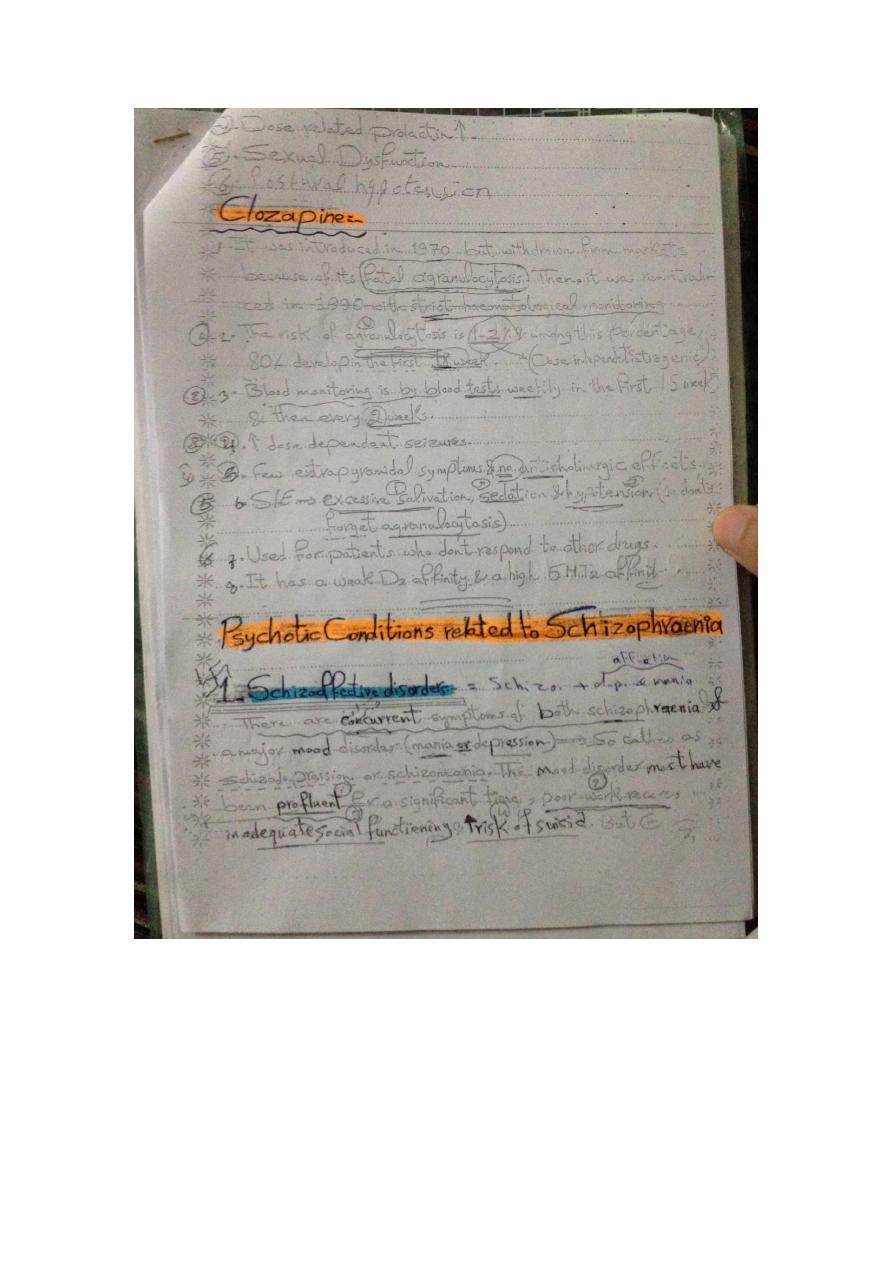 4. Dose related prolactin ↑.
5. Sexual Dysfunction
6. Postural hypotension
Clozapine:-
1- It was introduced in 1970 but withdrawn from markets
because of its fatal agranulocytosis. Then, it was reintrodu-
ced in 1990 with strict haematological monitoring
① 2- The risk of agranulocytosis is 1-2% & among this percentage,
80% develop in the first 18 week (dose independent iatrogenic)
② 3- Blood monitoring is by blood tests weekly in the first 15 week
& then every 2 weeks.
③ 4. ↑ dose dependent seizures.
5. Few extrapyramidal symptoms & no anticholinurgic effects.
⑤ 6 S/E → excessive salivation, sedation & hypotension (& don't
forget agranulocytosis)
7. Used for patients who don't respond to other drugs.
8. It has a weak D2 affinity & a high 5HT2 affinit
Psychotic Conditions related to Schizophraenia
affection
1. Schizoffective disorders = Schizo. + dep. & mania
There are concurrent symptoms of both schizophraenia &
a major mood disorder (mania or depression) → So called as
schizodepression or schizomania. The mood disorder most have
been profluent for a significant time, poor work
inadequate social functiening & ↑ risk of suicid. But